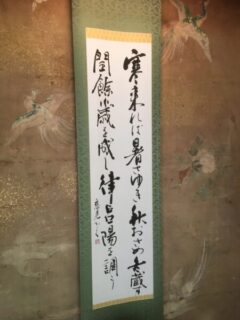 寒来れば暑さゆき秋おさめ冬蔵す
閏餘は歳を成し律呂陽を調う